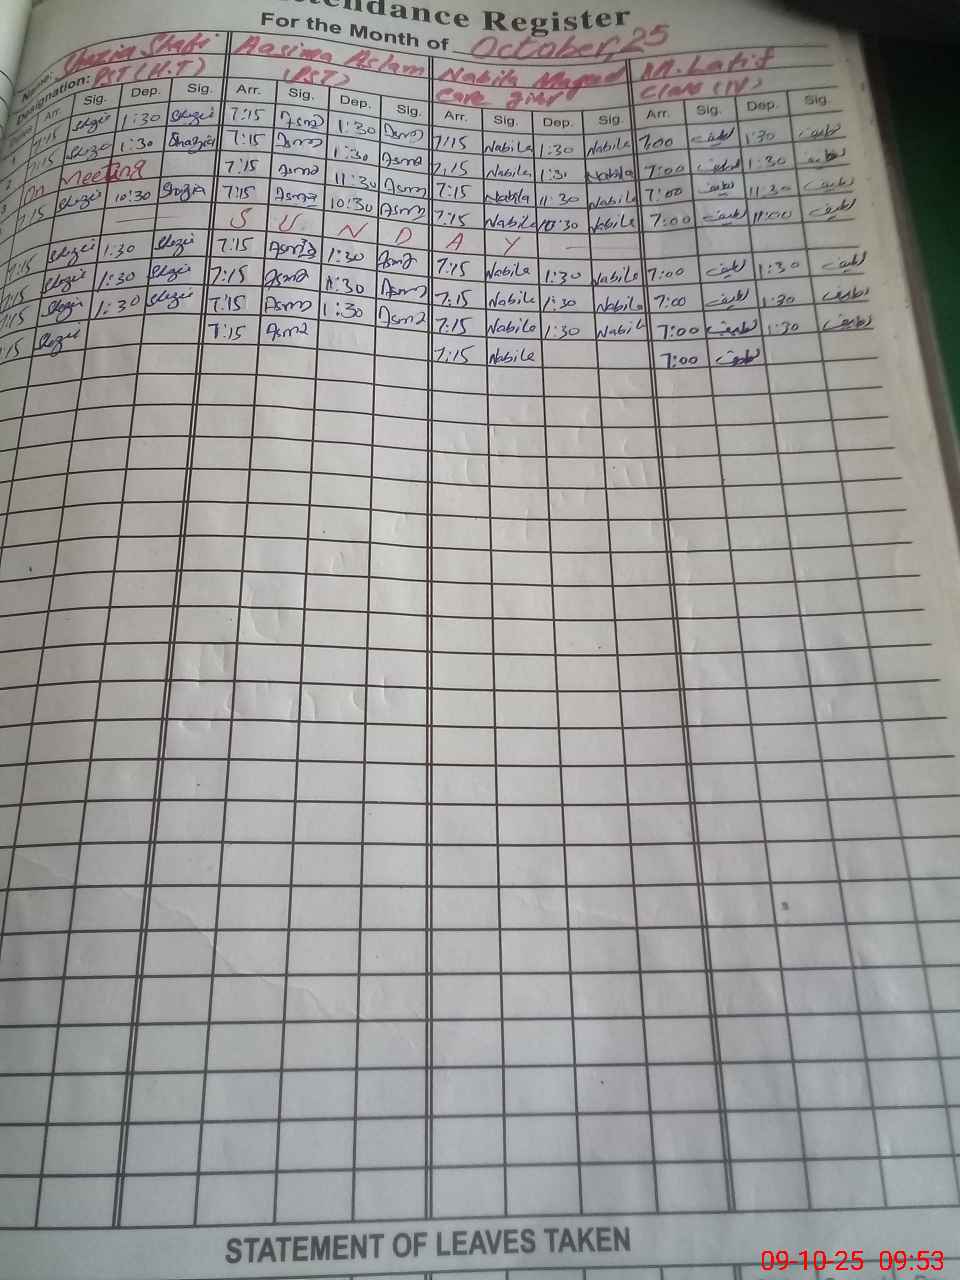 tendance Register
For the Month of October, 25
Name: Shazia Shafi Aasima Aslam Nabila Maqsood M. Latif
Designation: PST (H.T) (PST) Care giver Class (IV)
Arr. Sig. Dep. Sig. Arr. Sig. Dep. Sig. Arr. Sig. Dep. Sig. Arr. Sig. Dep. Sig.
1 7:15 1:30 7:15 Asma 1:30 Asma 7:15 Nabila 1:30 Nabila 7:00 لطیف 1:30 لطیف
2 7:15 1:30 Shazia 7:15 Asma 1:30 Asma 7:15 Nabila 1:30 Nabila 7:00 لطیف 1:30 لطیف
3 On Meeting 7:15 Asma 11:30 Asma 7:15 Nabila 11:30 Nabila 7:00 لطیف 11:30 لطیف
7:15 10:30 Shazia 7:15 Asma 10:30 Asma 7:15 Nabila 10:30 Nabila 7:00 لطیف 11:00 لطیف
S U N D A Y
7:15 1:30 7:15 Asma 1:30 Asma 7:15 Nabila 1:30 Nabila 7:00 لطیف 1:30 لطیف
7:15 1:30 7:15 Asma 1:30 Asma 7:15 Nabila 1:30 Nabila 7:00 لطیف 1:30 لطیف
7:15 1:30 7:15 Asma 1:30 Asma 7:15 Nabila 1:30 Nabila 7:00 لطیف 1:30 لطیف
7:15 7:15 Asma 7:15 Nabila 7:00 لطیف
STATEMENT OF LEAVES TAKEN
09-10-25 09:53